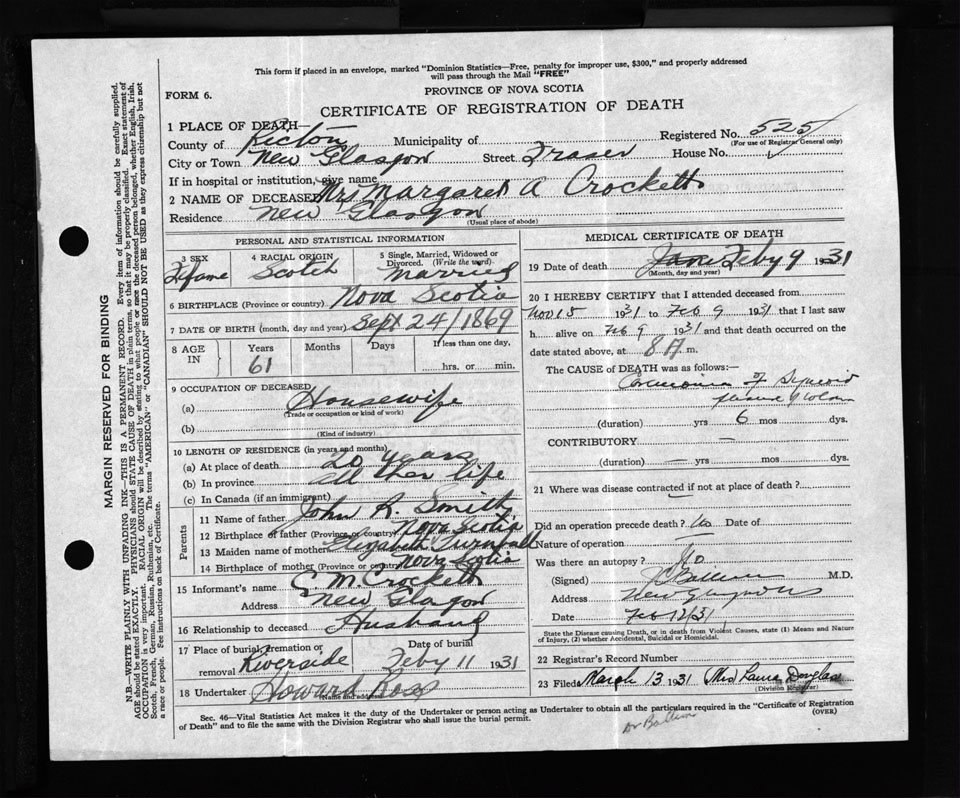 This form if placed in an envelope, marked "Dominion Statistics—Free, penalty for improper use, $300," and properly addressed
will pass through the Mail "FREE"
PROVINCE OF NOVA SCOTIA
FORM 6.
CERTIFICATE OF REGISTRATION OF DEATH
1 PLACE OF DEATH—
Registered No. 525
(For use of Registrar General only)
County of Pictou Municipality of
City or Town New Glasgow Street Fraser House No.
If in hospital or institution, give name
2 NAME OF DECEASED Mrs Margaret A Crockett
Residence New Glasgow
(Usual place of abode)
PERSONAL AND STATISTICAL INFORMATION
3 SEX 4 RACIAL ORIGIN 5 Single, Married, Widowed or Divorced. (Write the word)
Scotch Married
6 BIRTHPLACE (Province or country) Nova Scotia
7 DATE OF BIRTH (month, day and year) Sept 24/1869
8 AGE IN Years Months Days If less than one day,
61 hrs. or min.
9 OCCUPATION OF DECEASED
(a) Housewife
(Trade or occupation or kind of work)
(b)
(Kind of industry)
10 LENGTH OF RESIDENCE (in years and months)
(a) At place of death 20 years
(b) In province all her life
(c) In Canada (if an immigrant)
Parents
11 Name of father John R. Smith
12 Birthplace of father (Province or country) Nova Scotia
13 Maiden name of mother Elizabeth Turnball
14 Birthplace of mother (Province or country) Nova Scotia
15 Informant's name M. Crockett
Address New Glagow
16 Relationship to deceased Husband
17 Place of burial, cremation or removal Riverside
Date of burial Feby 11 1931
18 Undertaker Howard Ross
(Name and address)
MEDICAL CERTIFICATE OF DEATH
19 Date of death Jan Feby 9 1931
(Month, day and year)
20 I HEREBY CERTIFY that I attended deceased from
Nov 15 1931 to Feb 9 1931 that I last saw
h alive on Feb 9 1931 and that death occurred on
date stated above, at 8 A m.
The CAUSE of DEATH was as follows:—
of Sigmoid
(duration) yrs 6 mos dys.
CONTRIBUTORY —
(duration) — yrs mos dys.
21 Where was disease contracted if not at place of death?
Did an operation precede death? No Date of
Nature of operation
Was there an autopsy? No
(Signed) M.D.
Address New Glasgow
Date Feb 12/31
State the Disease causing Death, or in death from Violent Causes, state (1) Means and Nature
of Injury, (2) whether Accidental, Suicidal or Homicidal.
22 Registrar's Record Number
23 Filed March 13 1931 Mrs Laura Douglas
(Division Registrar)
Sec. 46—Vital Statistics Act makes it the duty of the Undertaker or person acting as Undertaker to obtain all the particulars required in the "Certificate of Registration
of Death" and to file the same with the Division Registrar who shall issue the burial permit. (OVER)
MARGIN RESERVED FOR BINDING
N.B.—WRITE PLAINLY WITH UNFADING INK—THIS IS A PERMANENT RECORD. Every item of information should be carefully supplied.
AGE should be stated EXACTLY. PHYSICIANS should STATE CAUSE OF DEATH in plain terms, so that it may be properly classified. Exact statement of
OCCUPATION is very important. RACIAL ORIGIN will be described by stating to what people or race the deceased person belonged, whether English, Irish,
Scotch, French, German, Russian, Ruthenian, etc. The terms "AMERICAN" or "CANADIAN" SHOULD NOT BE USED as they express citizenship but not
a race or people. See instructions on back of Certificate.